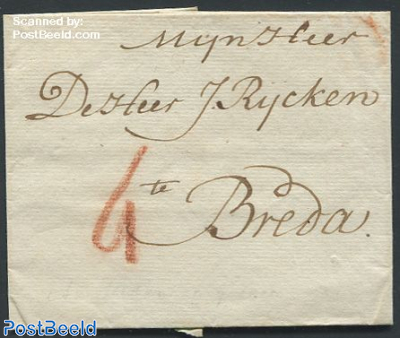 Scanned by:
PostBeeld.com
Mijn Heer
De Heer J. Rijcken
4
te Breda.
PostBeeld